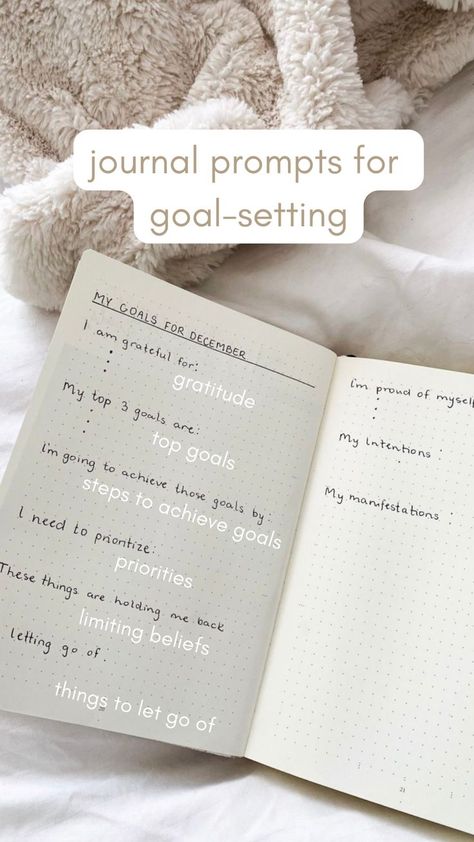 journal prompts for
goal-setting
MY GOALS FOR DECEMBER
I am grateful for:
gratitude
My top 3 goals are:
top goals
I'm going to achieve those goals by:
steps to achieve goals
I need to prioritize:
priorities
These things are holding me back
limiting beliefs
letting go of:
things to let go of
I'm proud of myself
My Intentions :
My manifestations :
21